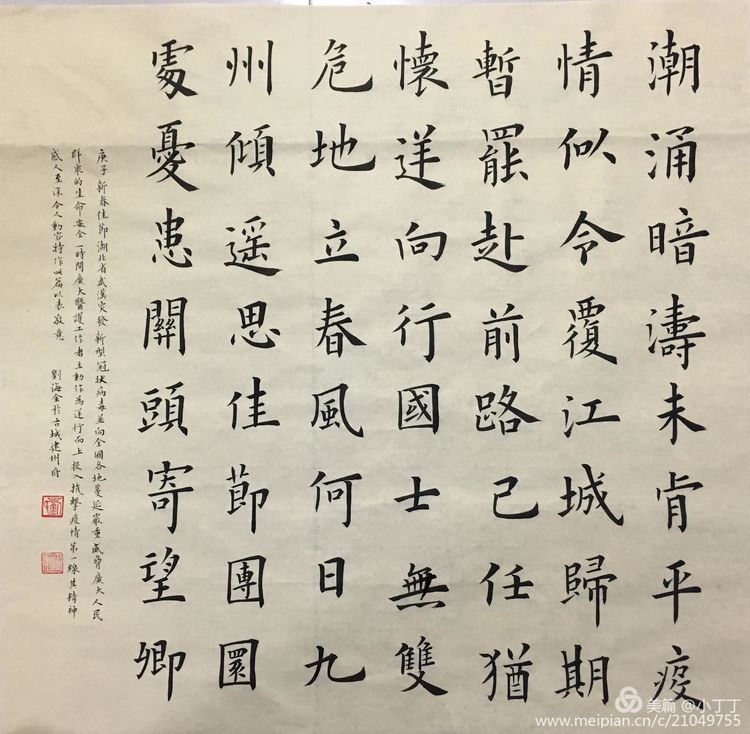 潮涌暗濤未肯平疫
情似令覆江城歸期
暫罷赴前路己任猶
懷逆向行國士無雙
危地立春風何日九
州傾遥思佳節團圞
處憂患關頭寄望卿
庚子新春佳節湖北省武漢突發新型冠狀病毒並向全國各地蔓延嚴重威脅廣大人民
群衆的生命安全一時間廣大醫護工作者主動作為逆行向上投入抗擊疫情第一線其精神
感人至深令人動容特作此篇以表敬意 劉海金於古城建州府
美篇 @小丁丁
www.meipian.cn/c/21049755